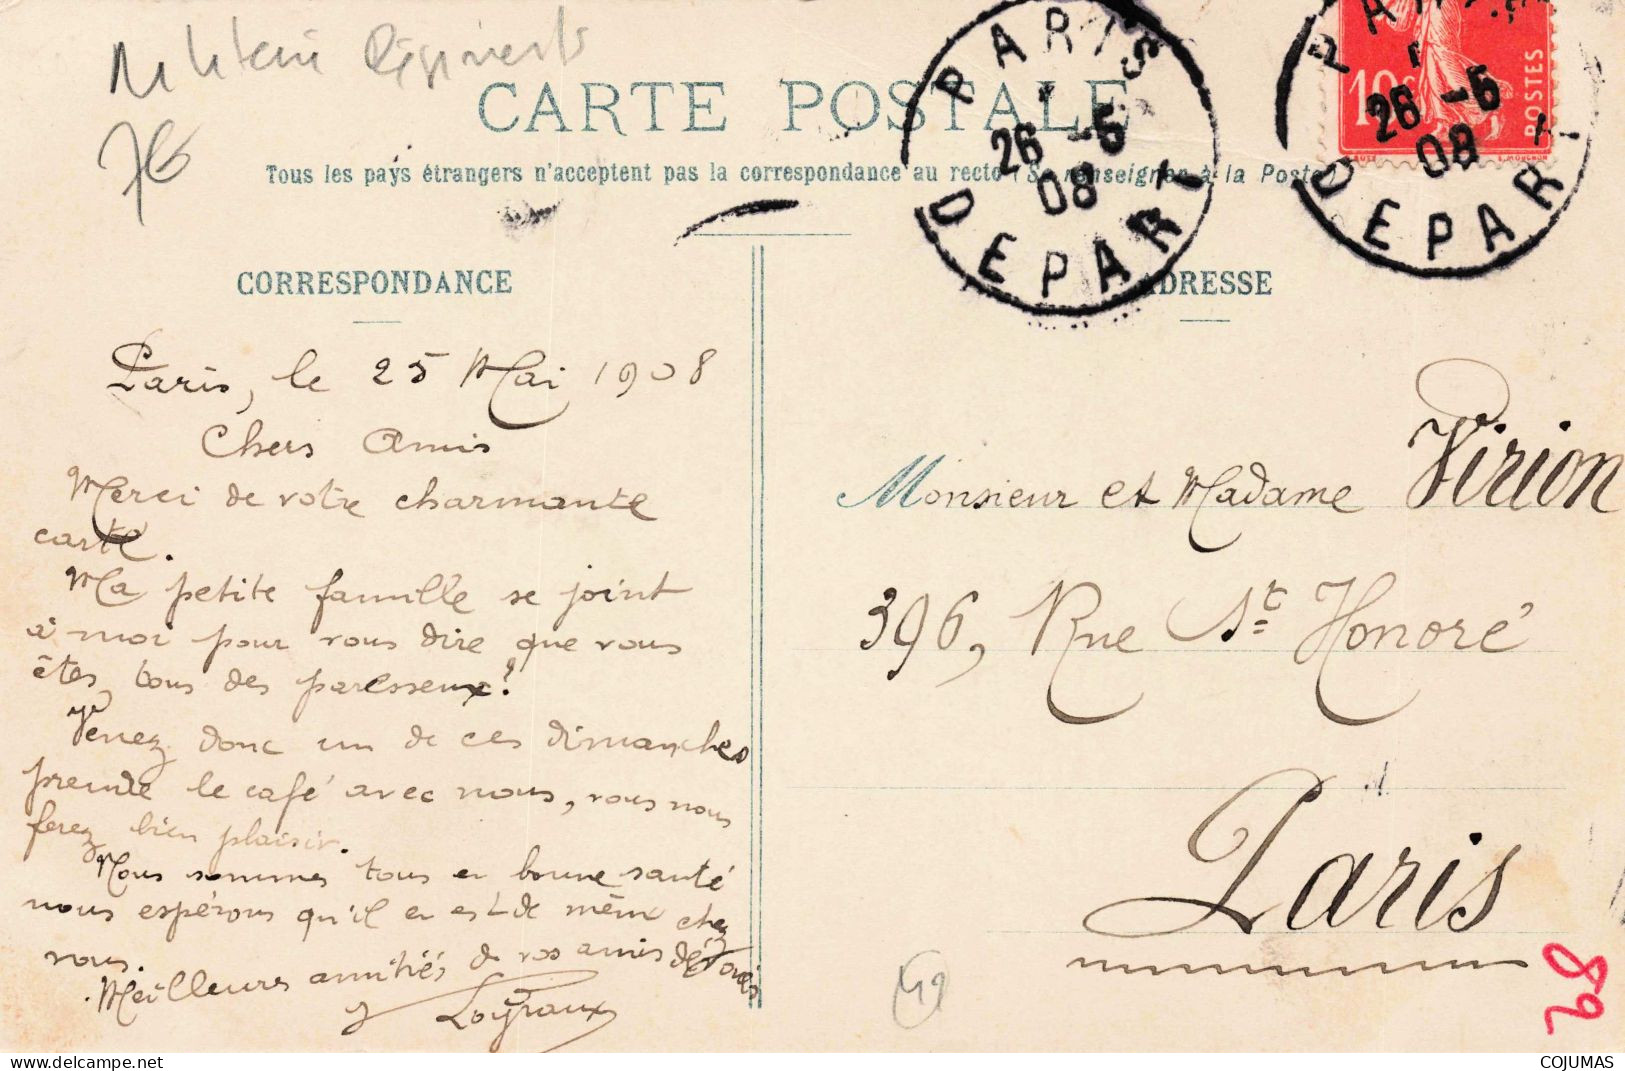 Militaria Régiments
7€
CARTE POSTALE
Tous les pays étrangers n'acceptent pas la correspondance au recto (Se renseigner à la Poste)
PARIS
26 -5
08
DEPART
PARIS
26 -5
08
DEPART
10c
POSTES
E. MOUCHON
CORRESPONDANCE
ADRESSE
Paris, le 25 Mai 1908
Chers Amis
Merci de votre charmante
carte.
Ma petite famille se joint
à moi pour vous dire que vous
êtes tous des paresseux!
Venez donc un de ces dimanches
prendre le café avec nous, vous nous
ferez bien plaisir.
Nous sommes tous en bonne santé
nous espérons qu'il en est de même chez
vous.
Meilleurs amitiés de vos amis dévoués
Monsieur et Madame Virion
396, Rue St Honoré
Paris
49
89
COJUMAS